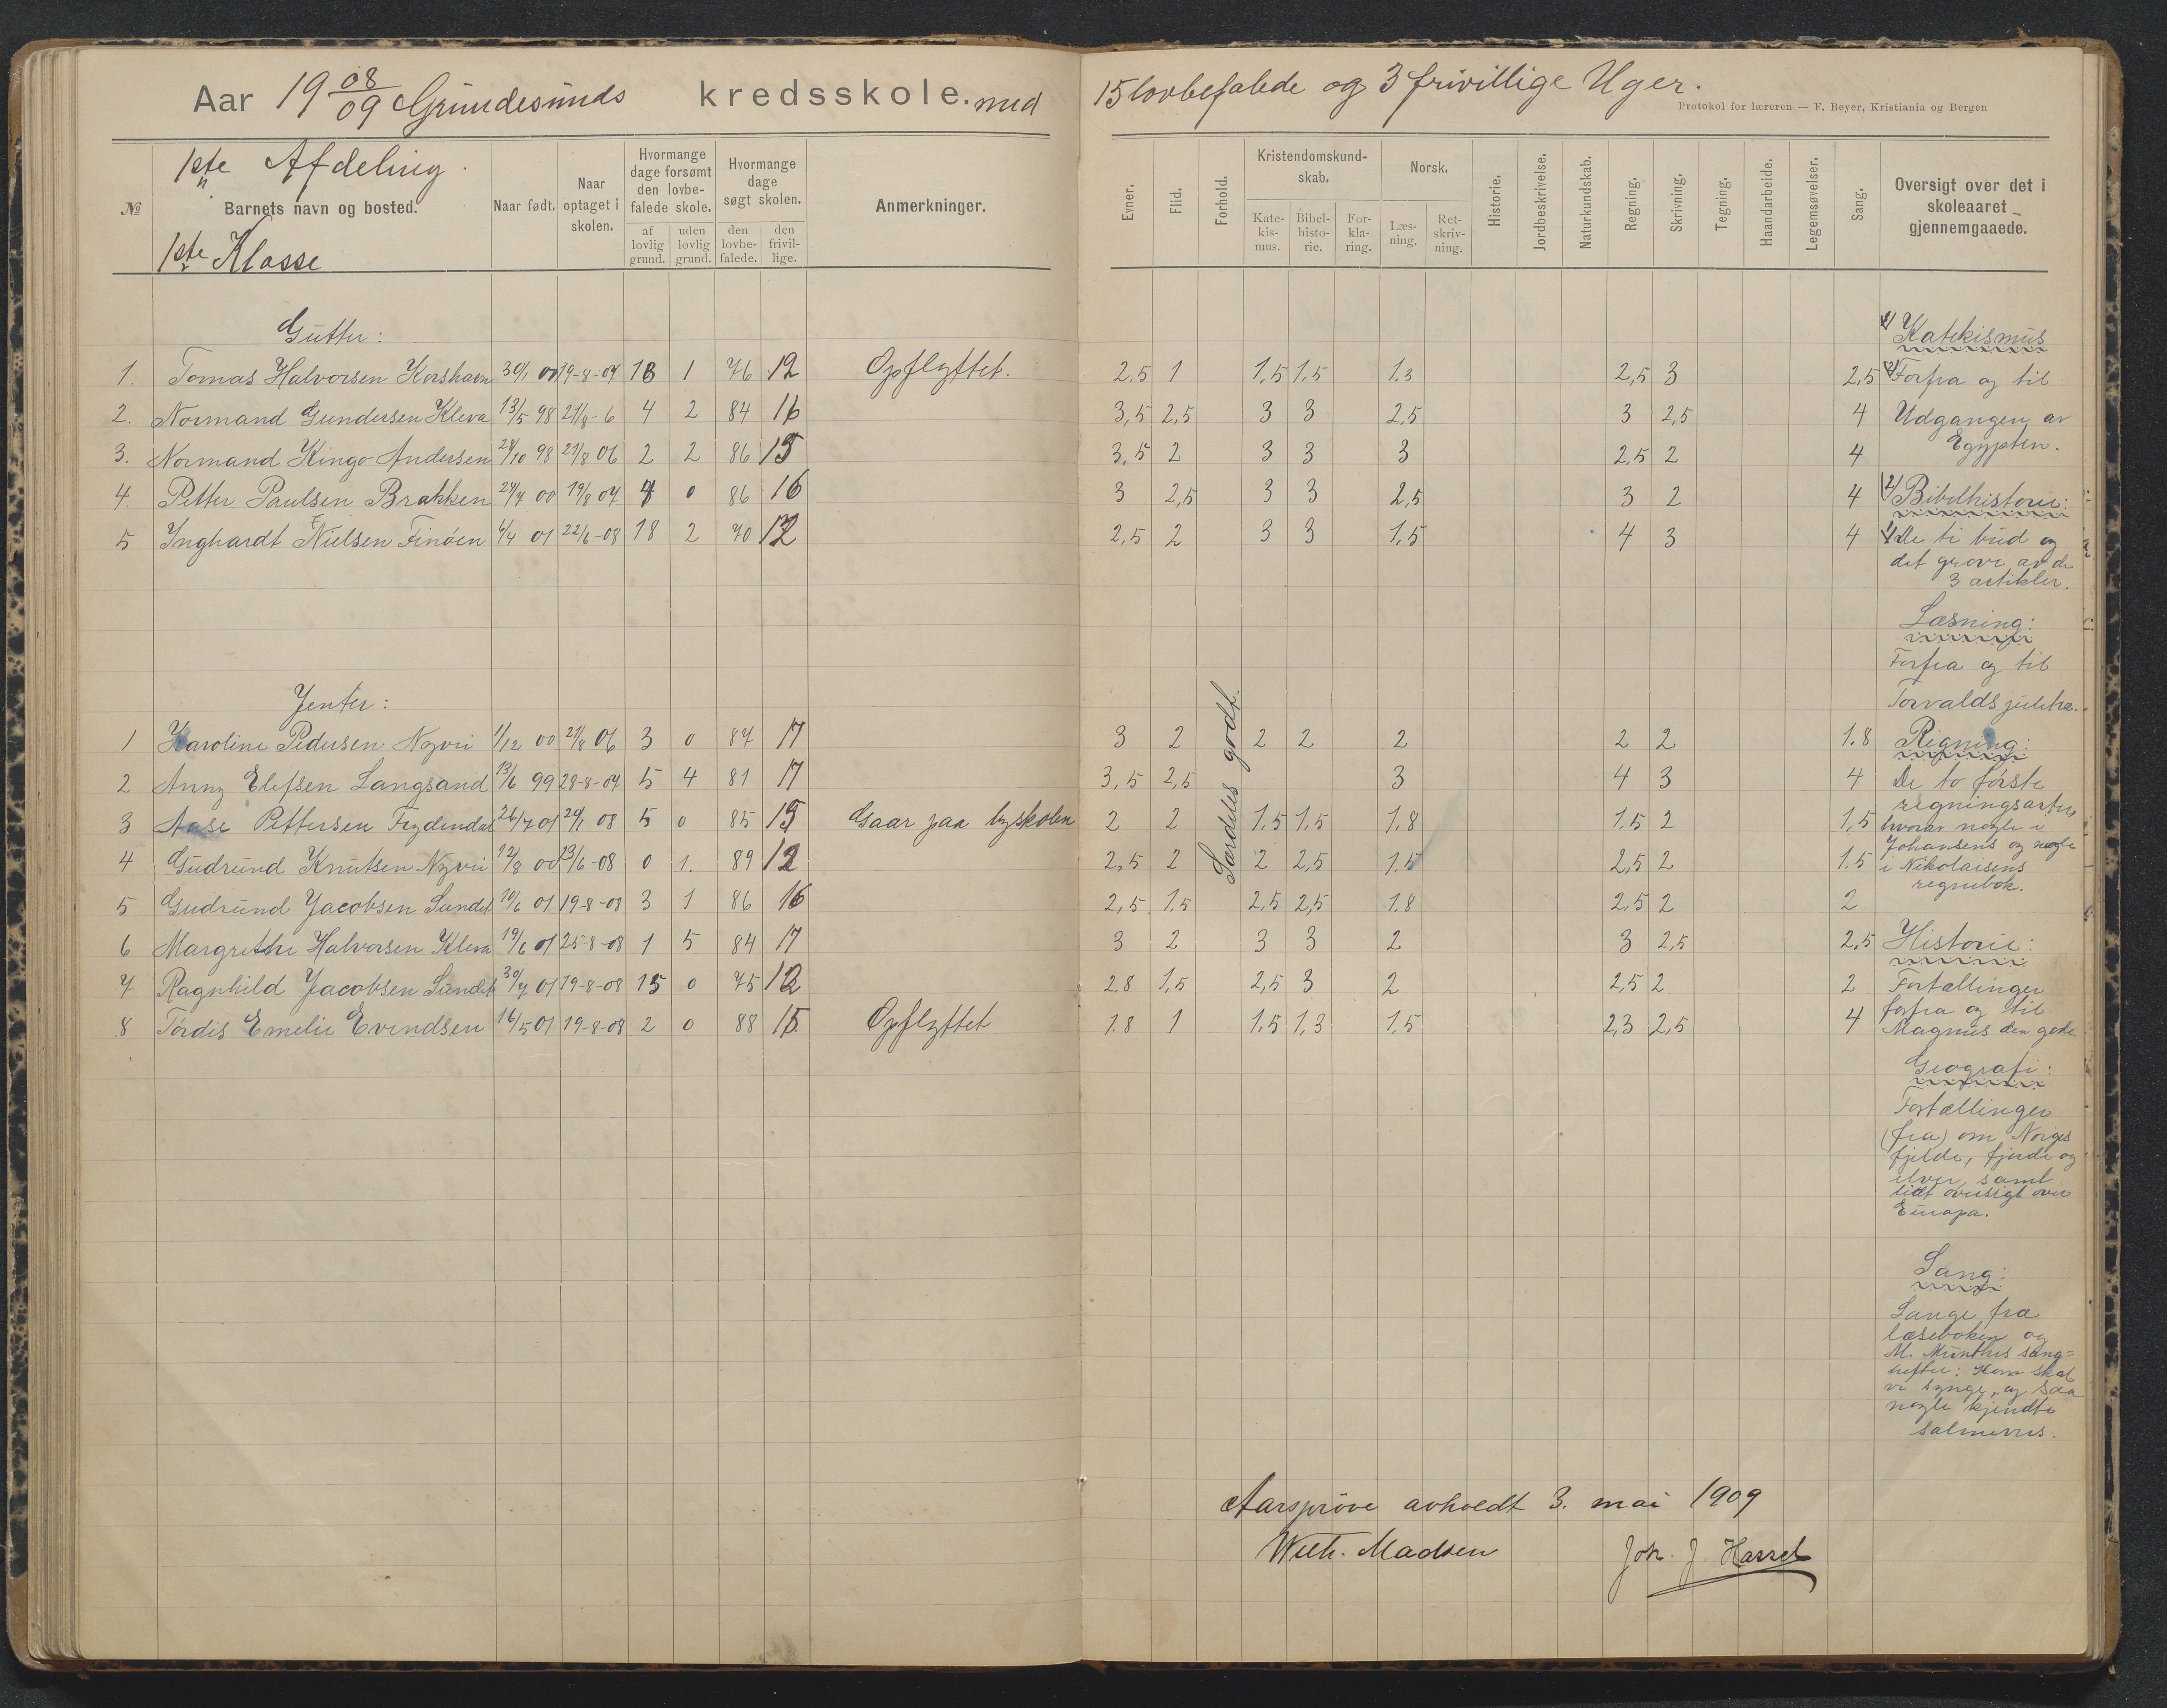 Aar 19 08/09 Grundesunds kredsskole. med 15 lovbefalede og 3 frivillige Uger.
Protokol for læreren — F. Beyer, Kristiania og Bergen
1ste Afdeling.
1ste Klasse
№ Barnets navn og bosted. Naar født. Naar optaget i skolen. Hvormange dage forsømt den lovbefalede skole. af lovlig grund. uden lovlig grund. Hvormange dage søgt skolen. den lovbefalede. den frivillige. Anmerkninger.
Evner. Flid. Forhold. Kristendomskundskab. Katekismus. Bibelhistorie. Forklaring. Norsk. Læsning. Retskrivning. Historie. Jordbeskrivelse. Naturkundskab. Regning. Skrivning. Tegning. Haandarbeide. Legemsøvelser. Sang. Oversigt over det i skoleaaret gjennemgaaede.
Gutter:
1. Tomas Halvorsen Korshavn 30/1 00 19-8-07 13 1 76 12 Opflyttet. 2.5 1 1,5 1,5 1.3 2,5 3 2,5
2. Normand Gundersen Kleva 13/5 98 21/8-6 4 2 84 16 3,5 2,5 3 3 2,5 3 2,5 4
3. Normand Kingo Andersen 28/10 98 21/8 06 2 2 86 15 3,5 2 3 3 3 2,5 2 4
4. Petter Paulsen Brakken 24/7 00 19/8 07 4 0 86 16 3 2,5 3 3 2,5 3 2 4
5 Inghardt Nielsen Finöen 6/4 01 22/6-08 18 2 70 12 2,5 2 3 3 1,5 4 3 4
Jenter:
1 Karoline Pedersen Nyvii 1/12 00 21/8 06 3 0 87 17 3 2 2 2 2 2 2 1.8
2 Anny Elefsen Langsand 13/6 99 28-8-07 5 4 81 17 3,5 2,5 3 4 3 4
3 Aase Pettersen Frydendal 26/7 01 20/1 08 5 0 85 15 Gaar paa byskolen 2 2 1,5 1,5 1.8 1.5 2 1,5
4 Gudrund Knutsen Nyvii 12/8 00 13/6-08 0 1. 89 12 2,5 2 2 2,5 1.5 2,5 2 1.5
5 Gudrund Jacobsen Sundet 10/6 01 19-8-08 3 1 86 16 2,5 1.5 2,5 2,5 1.8 2,5 2 2
6 Margrethe Halvorsen Kleva 19/6 01 25-8-08 1 5 84 17 3 2 3 3 2 3 2,5 2,5
7 Ragnhild Jacobsen Sundet 30/7 01 19-8-08 15 0 75 12 2.8 1,5 2,5 3 2 2,5 2 2
8 Tordis Emelie Evendsen 16/5 01 19-8-08 2 0 88 15 Opflyttet 1.8 1 1,5 1,3 1,5 2,3 2,5 4
Særdeles godt.
Katekismus
Forfra og til
Udgangen av
Egypten.
2) Bibelhistorie:
1) De ti bud og
det grove av de
3 artikler.
Læsning:
Forfra og til
Torvalds juletræ.
Regning:
De to første
regningsarter
hvorav nogle i
Johansens og nogle
i Nikolaisens
regnebok.
Historie:
Fortællinger
forfra og til
Magnus den gode.
Geografi:
Fortællinger
(fra) om Norges
fjelde, fjorde og
elver, samt
lidt oversigt over
Europa.
Sang:
Sange fra
læseboken og
M. Munthes sang=
hefter: Kom skal
vi synge, og saa
nogle kjendte
salmevers.
Aarsprøve avholdt 3. mai 1909
Wilh. Madsen Joh. J. Hassel